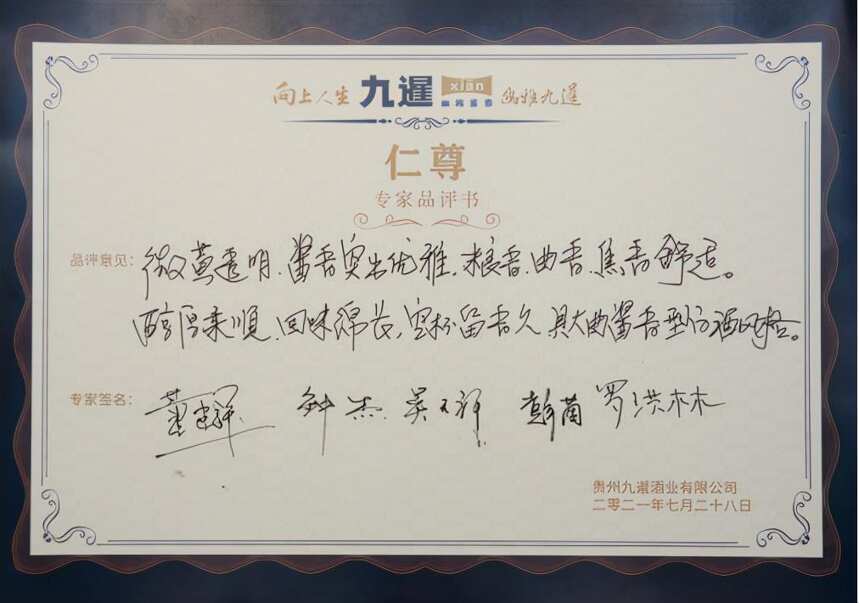 向上人生 九暹 xian 幽雅酱香 幽雅九暹
仁尊
专家品评书
品评意见: 微黄透明、酱香突出优雅、粮香、曲香、焦香舒适。
醇厚柔顺、回味绵长、空杯留香久、具大曲酱香型白酒风格。
专家签名: 钟杰 吴天祥 彭茵 罗洪林
贵州九暹酒业有限公司
二零二一年七月二十八日